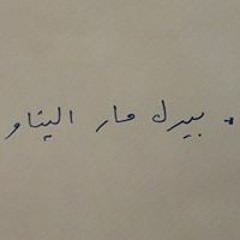 . بيرل مار اليناو